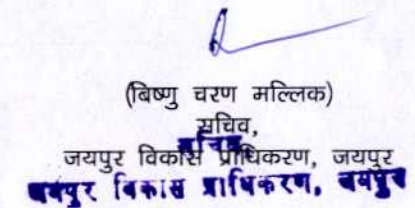 (बिष्णु चरण मल्लिक)
सचिव,
सचिव
जयपुर विकास प्राधिकरण, जयपुर
जयपुर विकास प्राधिकरण, जयपुर